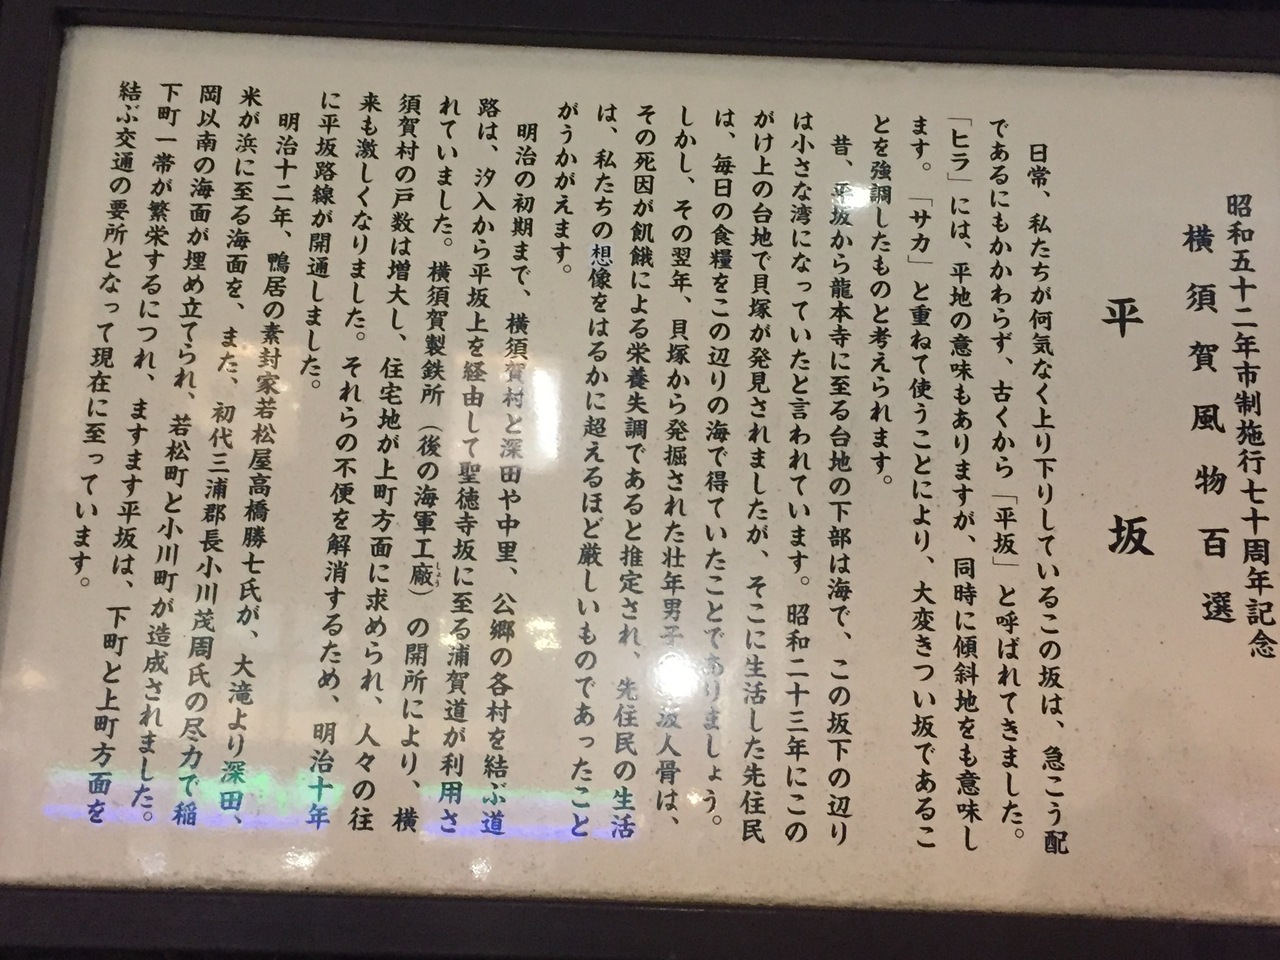 昭和五十二年市制施行七十周年記念
横須賀風物百選
平坂
日常、私たちが何気なく上り下りしているこの坂は、急こう配
であるにもかかわらず、古くから「平坂」と呼ばれてきました。
「ヒラ」には、平地の意味もありますが、同時に傾斜地をも意味し
ます。「サカ」と重ねて使うことにより、大変きつい坂であるこ
とを強調したものと考えられます。
昔、平坂から龍本寺に至る台地の下部は海で、この坂下の辺り
は小さな湾になっていたと言われています。昭和二十三年にこの
がけ上の台地で貝塚が発見されましたが、そこに生活した先住民
は、毎日の食糧をこの辺りの海で得ていたことでありましょう。
しかし、その翌年、貝塚から発掘された壮年男子の坂人骨は、
その死因が飢餓による栄養失調であると推定され、先住民の生活
は、私たちの想像をはるかに超えるほど厳しいものであったこと
がうかがえます。
明治の初期まで、横須賀村と深田や中里、公郷の各村を結ぶ道
路は、汐入から平坂上を経由して聖徳寺坂に至る浦賀道が利用さ
れていました。横須賀製鉄所（後の海軍工廠しょう）の開所により、横
須賀村の戸数は増大し、住宅地が上町方面に求められ、人々の往
来も激しくなりました。それらの不便を解消するため、明治十年
に平坂路線が開通しました。
明治十二年、鴨居の素封家若松屋高橋勝七氏が、大滝より深田、
米が浜に至る海面を、また、初代三浦郡長小川茂周氏の尽力で稲
岡以南の海面が埋め立てられ、若松町と小川町が造成されました。
下町一帯が繁栄するにつれ、ますます平坂は、下町と上町方面を
結ぶ交通の要所となって現在に至っています。